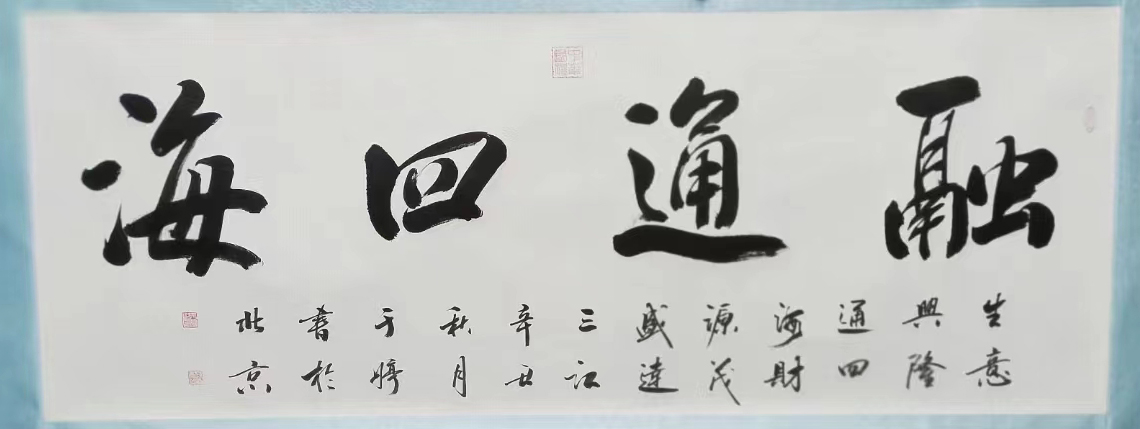 融通四海
生意
興隆
通四
海財
源茂
盛達
三江
辛丑
秋月
于
書於
北京